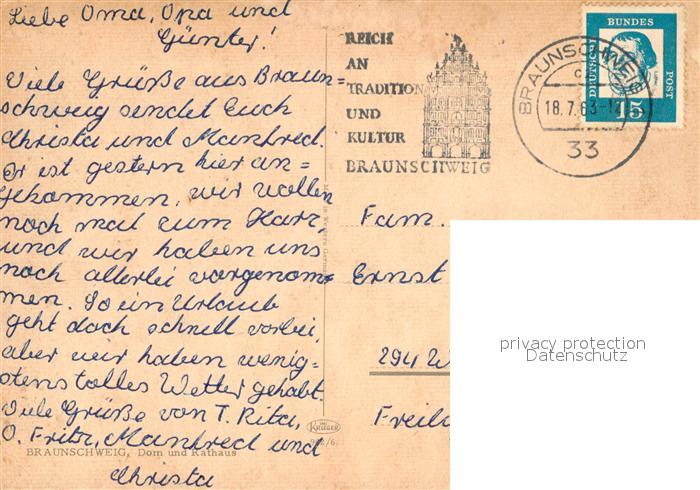 Liebe Oma, Opa und
Günter!
Viele Grüße aus Braun=
schweig sendet Euch
Christa und Manfred.
Er ist gestern hier an=
gekommen, wir wollen
noch mal zum Harz,
und wir haben uns
noch allerlei vorgenom=
men. So ein Urlaub
geht doch schnell vorbei,
aber wir haben wenig=
stens tolles Wetter gehabt.
Viele Grüße von T. Rita,
O. Fritz, Manfred und
Christa
BRAUNSCHWEIG, Dom und Rathaus
KRÜGER
REICH
AN
TRADITION
UND
KULTUR
BRAUNSCHWEIG
BRAUNSCHWEIG
18.7.63-1
33
DEUTSCHE
BUNDES
POST
15
Fam.
Ernst
294 W
Freili
privacy protection
Datenschutz